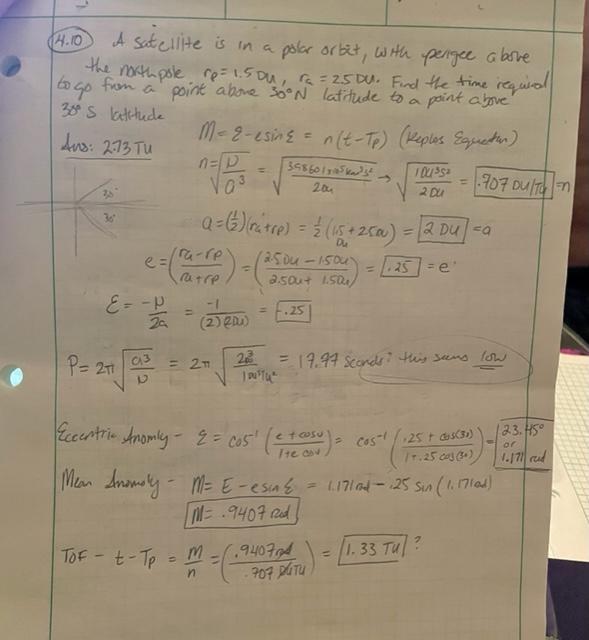 4.10 A satellite is in a polar orbit, with perigee above
the north pole rp = 1.5 DU, ra = 2.5 DU. Find the time required
to go from a point above 30° N latitude to a point above
30° S latitude
Ans: 2.73 TU
M = Ɛ - e sin Ɛ = n(t - Tp) (Keplos Equation)
30°
30°
n = √(μ/a³) = √(398601x10⁵ km³s²/2DU) → √(1DU³s²/2DU) = .707 DU/TU = n
a = (1/2)(ra + rp) = 1/2 (1.5 + 2.5DU) = 2 DU = a
DU
e = (ra - rp/ra + rp) = (2.5DU - 1.5DU/2.5DU + 1.5DU) = .25 = e
Ɛ = -μ/2a = -1/(2)(2DU) = -.25
P = 2π √(a³/μ) = 2π √(2³/1DU³TU²) = 17.77 Seconds? this seems low
Eccentric Anomly - Ɛ = cos⁻¹ (e + cosν/1+e cosν) = cos⁻¹ (.25 + cos(30)/1+.25 cos(30)) = 23.45° or 1.171 rad
Mean Anomoly - M = E - e sin Ɛ = 1.171 rad - .25 sin (1.171 rad)
M = .9407 rad
TOF - t - Tp = M/n = (.9407 rad/.707 DU TU) = 1.33 TU ?